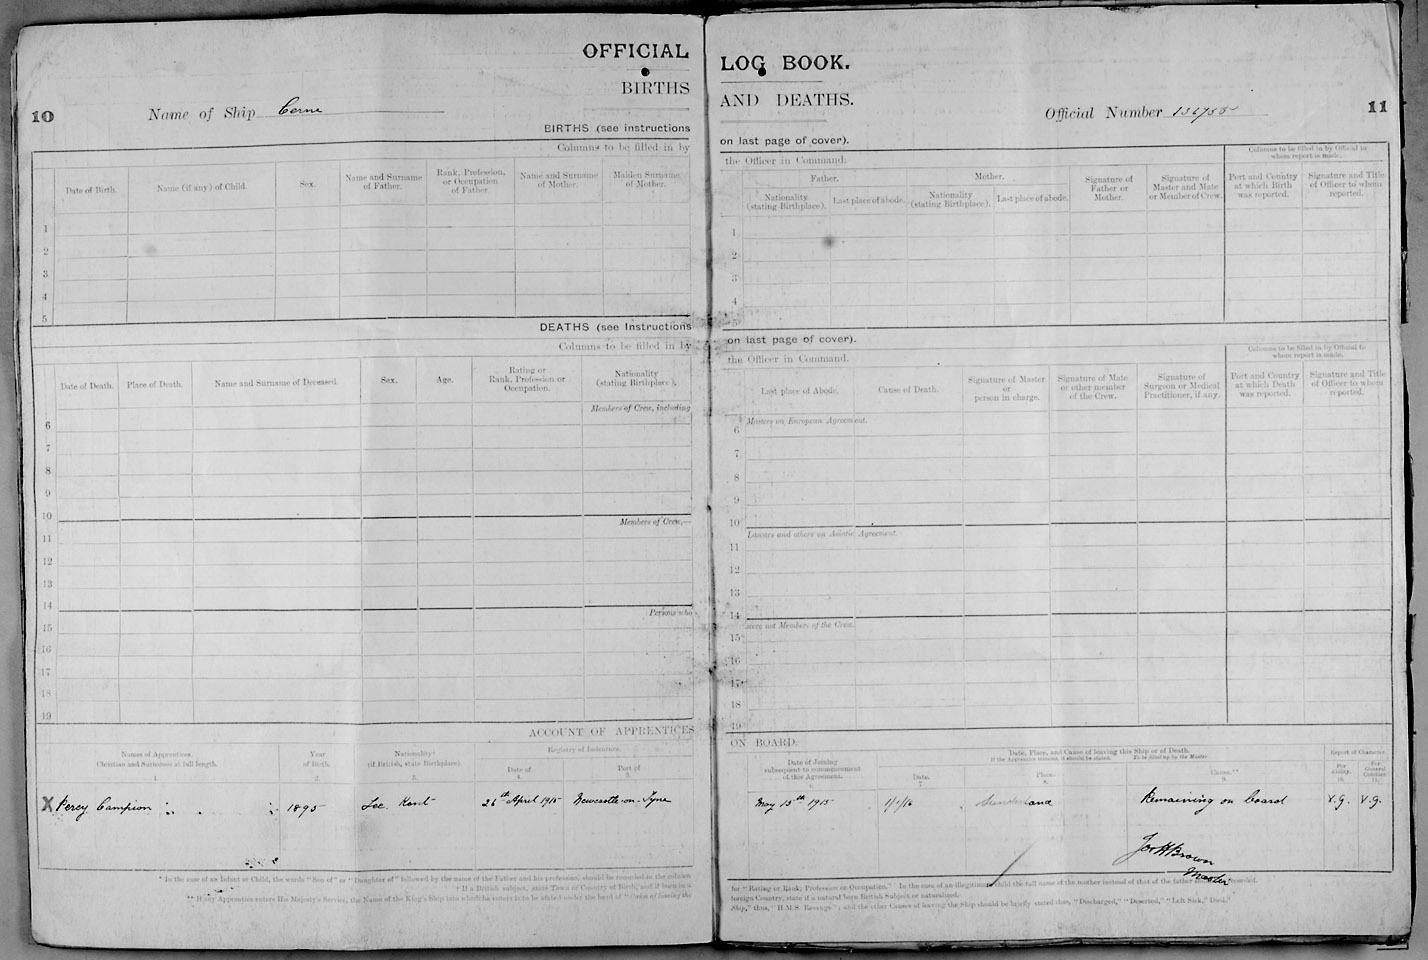 OFFICIAL LOG BOOK.
BIRTHS AND DEATHS.
10
Name of Ship Cerne
Official Number 136755
11
BIRTHS (see instructions on last page of cover).
Columns to be filled in by the Officer in Command.
Columns to be filled in by Official to whom report is made.
Father.
Mother.
Date of Birth.
Name (if any) of Child.
Sex.
Name and Surname of Father.
Rank, Profession, or Occupation of Father.
Name and Surname of Mother.
Maiden Surname of Mother.
Nationality (stating Birthplace).
Last place of abode.
Nationality (stating Birthplace).
Last place of abode.
Signature of Father or Mother.
Signature of Master and Mate or Member of Crew.
Port and Country at which Birth was reported.
Signature and Title of Officer to whom reported.
1
2
3
4
5
DEATHS (see Instructions on last page of cover).
Columns to be filled in by the Officer in Command.
Columns to be filled in by Official to whom report is made.
Date of Death.
Place of Death.
Name and Surname of Deceased.
Sex.
Age.
Rating or Rank, Profession or Occupation.
Nationality (stating Birthplace).
Last place of Abode.
Cause of Death.
Signature of Master or person in charge.
Signature of Mate or other member of the Crew.
Signature of Surgeon or Medical Practitioner, if any.
Port and Country at which Death was reported.
Signature and Title of Officer to whom reported.
Members of Crew, including Masters on European Agreement.
6
7
8
9
10
Members of Crew,— Lascars and others on Asiatic Agreement.
11
12
13
14
Persons who were not Members of the Crew.
15
16
17
18
19
ACCOUNT OF APPRENTICES ON BOARD.
Names of Apprentices. Christian and Surnames at full length.
Year of Birth.
Nationality† (if British, state Birthplace).
Registry of Indenture.
Date of
Port of
Date of Joining subsequent to commencement of this Agreement.
Date, Place, and Cause of leaving this Ship or of Death.
If the Apprentice remains, it should be stated. To be filled up by the Master
Date.
Place.
Cause.**
Report of Character.
For Ability.
For General Conduct.
1.
2.
3.
4.
5.
7.
8.
9.
10.
11.
X Percy Campion
1895
Lee. Kent
26th April 1915
Newcastle-on-Tyne
May 15th 1915
1/1/16
Sunderland
Remaining on board
V.G. V.G.
Jos H Brown
Master
* In the case of an Infant or Child, the words "Son of" or "Daughter of" followed by the name of the Father and his profession, should be recorded in the column for "Rating or Rank, Profession or Occupation." In the case of an illegitimate child the full name of the mother instead of that of the father should be recorded.
† If a British subject, state Town or Country of Birth, and if born in a foreign Country, state if a natural born British Subject or naturalized.
** If any Apprentice enters His Majesty's Service, the Name of the King's Ship into which he enters is to be stated under the head of "Cause of leaving the Ship," thus, "H.M.S. Revenge"; and the other Causes of leaving the Ship should be briefly stated thus, "Discharged," "Deserted," "Left Sick," "Died."